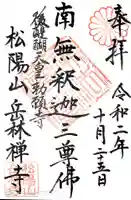 奉拝
令和二年
十月二十五日
南無釈迦三尊佛
後醍醐天皇勅願寺
松陽山岳林禅寺